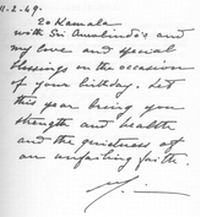 11-2-49.
To Kamala
with Sri Aurobindo's and
my love and special
blessings on the occasion
of your birthday. Let
this year bring you
strength and health
and the quietness of
an unfailing faith.